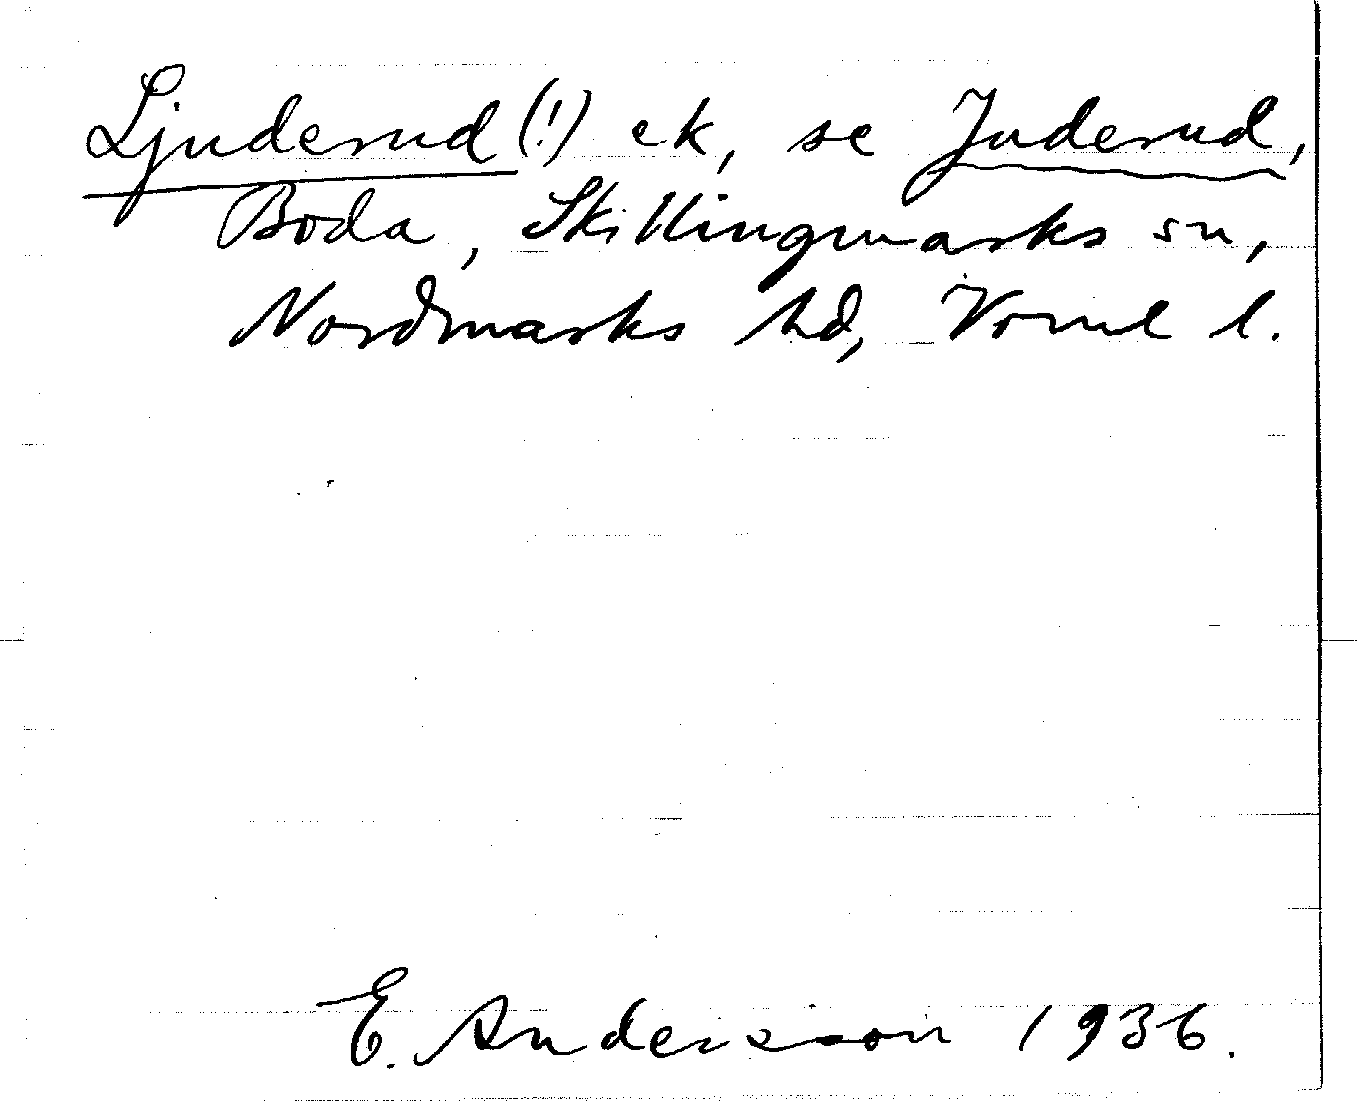 Ljuderud (!) ek, se Juderud,
Boda, Skillingmarks sn,
Nordmarks hd, Värml l.
E. Andersson 1936.